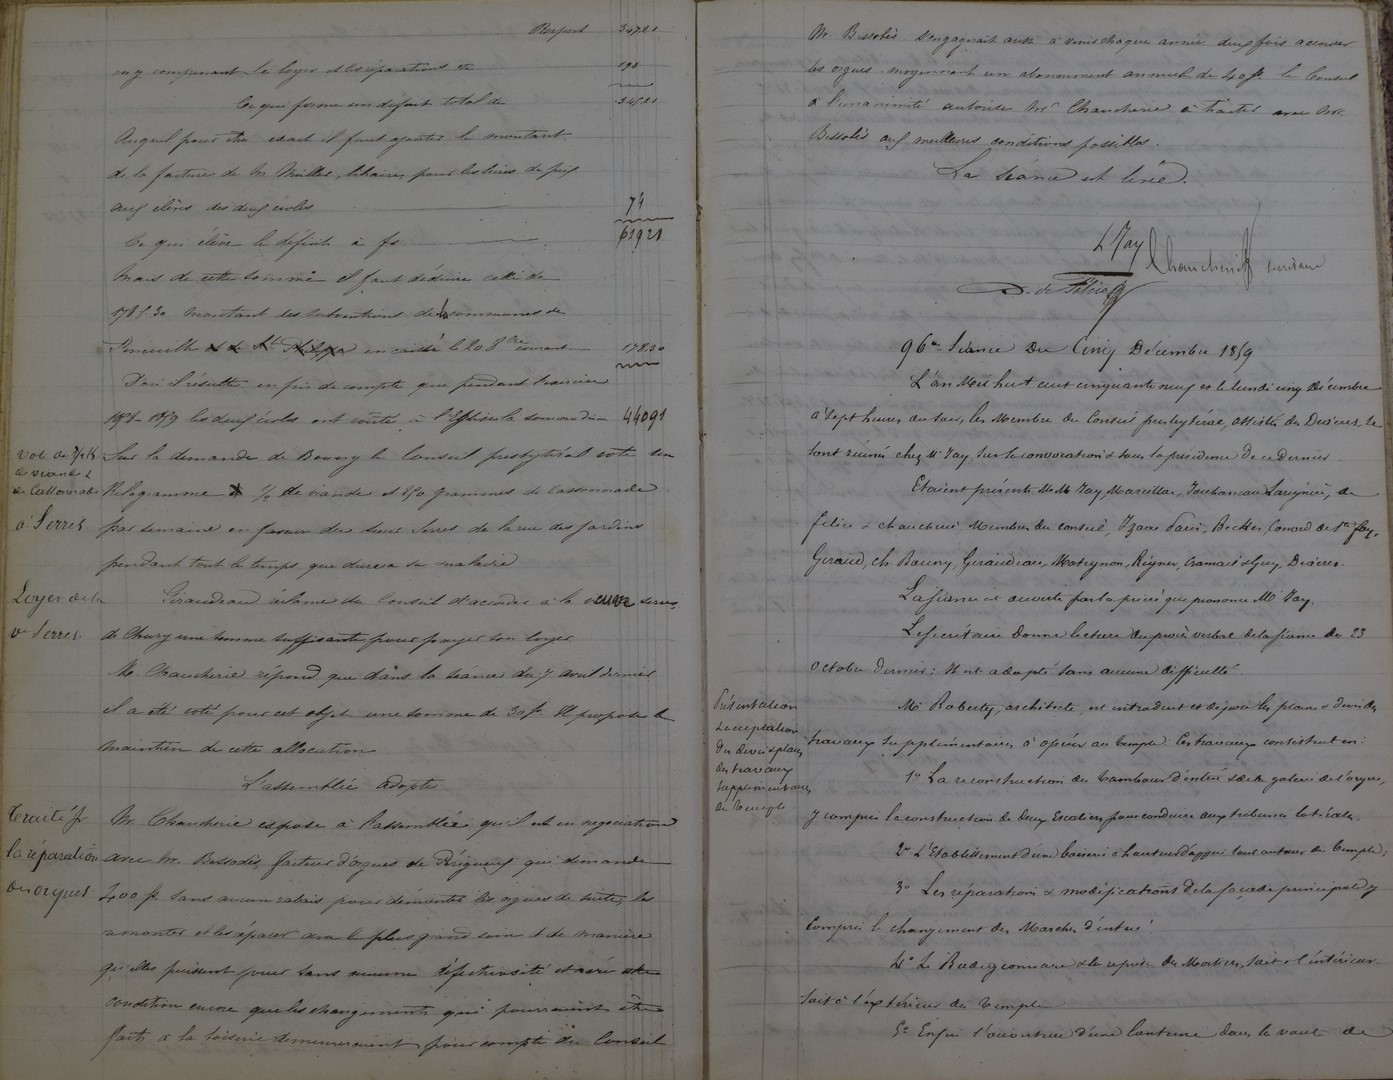 Report 347,21
en y comprenant le loyer et les réparations de 198
Ce qui forme un déficit total de 545,21
Auquel pour être exact il faut ajouter le montant
de la facture de Mr Müller, libraire, pour les livres de prix
aux élèves des deux écoles 74
Ce qui élève le déficit à fs 619 21
Mais de cette somme il faut déduire celle de
178f 30 montant des subventions des communes de
en caisse le 20 8bre courant 178.30
D'où il résulte en fin de compte que pendant l'exercice
1858-1859 les deux écoles ont coûté à l'Eglise la somme de 440 91
Vote de
de viande &
de Cassonade
à Serres
Sur la demande de Boury le Conseil presbytéral vote un
Kilogramme ½ de viande et 250 grammes de cassonnade
par semaine en faveur du sieur Serres de la rue des jardins
pendant tout le temps que durera sa maladie
Loyer de la
ve Serres.
Giraudeau réclame du Conseil d'accorder à la veuve Serres
de une somme suffisante pour payer son loyer
Mr Chaucherie répond que dans la séance du 7 avril dernier
il a été voté pour cet objet une somme de 30 f. Il propose le
maintien de cette allocation
L'assemblée adopte
Traité pr
la réparation
des orgues
Mr. Chaucherie expose à l'assemblée qu'il est en négociation
avec Mr. facteur d'orgues de Périgueux qui demande
400 f. sans aucun rabais pour démonter les orgues de suite, les
remonter et les réparer avec le plus grand soin & de manière
qu'elles puissent jouer sans aucune défectuosité
condition encore que les changements qui pourraient être
faits à la boiserie demeureraient pour compte du Conseil
Mr. s'engagerait aussi à venir chaque année deux fois accorder
les orgues moyennant un abonnement annuel de 40 f. le Conseil
à l'unanimité autorise Mr Chaucherie à traiter avec Mr.
aux meilleures conditions possibles.
La séance est levée.
L Jay
Chaucherie secrétaire
D. de Félice
96e Séance Du Cinq Décembre 1859
L'an Mil huit cent cinquante neuf et le lundi cinq Décembre
à sept heures du soir, les Membres du Conseil presbytéral, assistés des Diacres, se
sont réunis chez Mr Jay, sur la convocation & sous la présidence de ce Dernier.
Etaient présents MM. Jay, Marcillac, Lavignée, de
félice & chaucherie, Membres du conseil, Becker, Conord de Ste foy,
Giraud, ch. Boury, Giraudeau, Matignon, Reynier, & Guy, Diacres.
La séance est ouverte par la prière que prononce Mr Jay.
Le secrétaire donne lecture du procès verbal de la séance du 23
octobre dernier: Il est adopté sans aucune difficulté
Présentation
& acceptation
Des devis & plans
des travaux
supplémentaires
du temple
Mr Roberty, architecte, est introduit et dépose les plans & devis des
travaux supplémentaires à opérer au temple. Ces travaux consistent en:
1o La reconstruction du tambour d'entrée & de la galerie de l'orgue,
y compris la construction de deux Escaliers pour conduire aux tribunes latérales.
2o L'Etablissement d'une boiserie à hauteur d'appui tout autour du temple;
3o Les réparations & modifications de la façade principale y
compris le changement des Marches d'entrée.
4o Le Badigeonnage & la reprise des Mortiers, soit à l'intérieur
soit à l'extérieur du temple
5o Enfin l'ouverture d'une lanterne dans la voute de